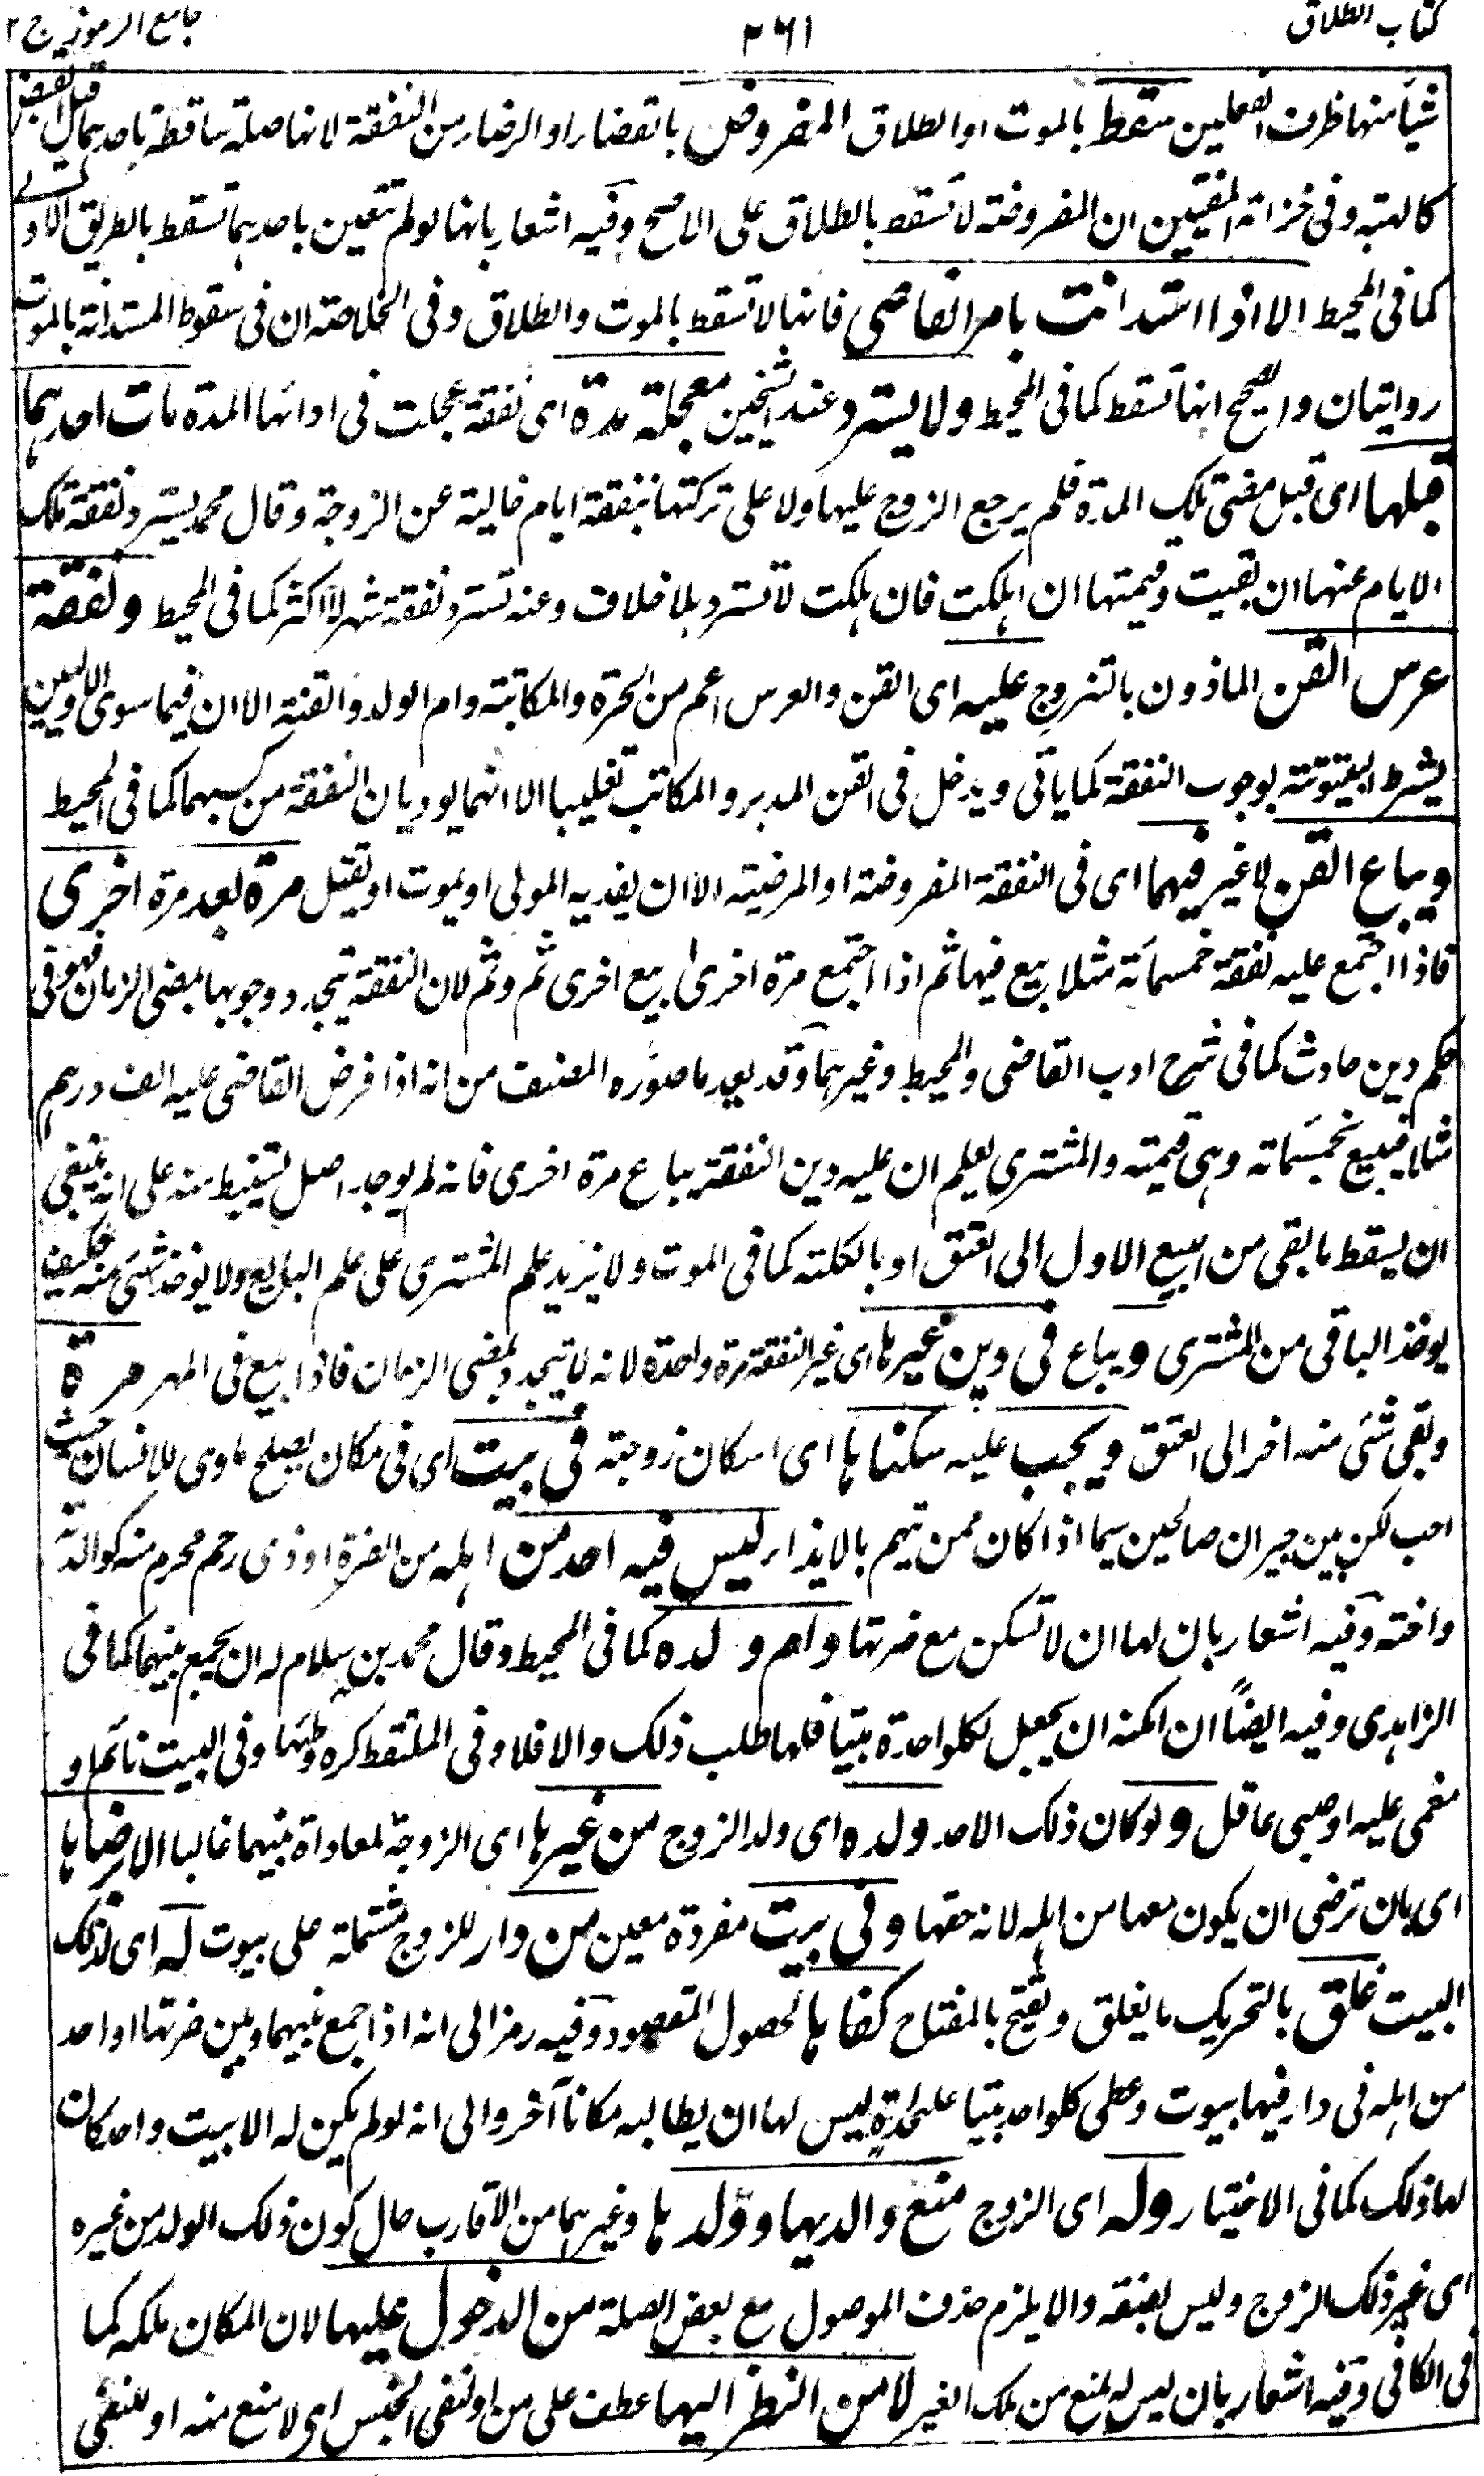 كتاب الطلاق
٢٦١
جامع الرموز ج ٢
شيأ منها ظرف الفعلين سقط بالموت او الطلاق المفروض بالقضاء او الرضاء من النفقة لانها صلة ساقطة باحدهما قبل القبض
كالهبة وفى خزانة المفتيين ان المفروضة لا تسقط بالطلاق على الاصح وفيه اشعار بانها لو لم تتعين باحدهما تسقط بالطريق الاولى
كما فى المحيط الا اذا استدانت بامر القاضى فانها لا تسقط بالموت والطلاق وفى الخلاصة ان فى سقوط المستدانة بالموت
روايتان والصحيح انها تسقط كما فى المحيط ولا يسترد عند الشيخين معجلة مدة اى نفقة عجلت فى ادائها المدة مات احدهما
قبلها اى قبل مضى تلك المدة فلم يرجع الزوج عليها ولا على تركتها بنفقة ايام خالية عن الزوجة وقال محمد يسترد نفقة تلك
الايام عنها ان بقيت وقيمتها ان اهلكت فان هلكت لا تسترد بلا خلاف وعنه تسترد نفقة شهر لا اكثر كما فى المحيط ونفقة
عرس القن الماذون بالتزوج عليه اى القن والعرس اعم من الحرة والمكاتبة وام الولد والقنة الا ان فيما سوى الاوليين
يشرط البيتوتة بوجوب النفقة كما ياتى ويدخل فى القن المدبر والمكاتب تغليبا الا انهما يوديان النفقة من كسبهما كما فى المحيط
ويباع القن لا غير فيهما اى فى النفقة المفروضة او المرضية الا ان يفديه المولى او يموت او يقتل مرة بعد مرة اخرى
فاذا اجتمع عليه نفقة خمسمائة مثلا بيع فيها ثم اذا اجتمع مرة اخرى بيع اخرى ثم وثم لان النفقة يتجدد وجوبها بمضى الزمان فهو فى
حكم دين حادث كما فى شرح ادب القاضى والمحيط وغيرهما وقد بعد ما صوره المصنف من انه اذا فرض القاضى عليه الف درهم
مثلا فبيع بخمسمائة وهى قيمته والمشترى يعلم ان عليه دين النفقة يباع مرة اخرى فانه لم يوجد اصل يستنبط منه على انه ينبغى
ان يسقط ما بقى من البيع الاول الى العتق او بالكلية كما فى الموت ولا يزيد علم المشترى على علم البايع ولا يوخذ شئ منه فكيف
يوخذ الباقى من المشترى ويباع فى دين غيرها اى غير النفقة مرة واحدة لانه لا يتجدد بمضى الزمان فاذا بيع فى المهر مرة
وبقى شئ منه اخر الى العتق ويجب عليه سكناها اى اسكان زوجته فى بيت اى فى مكان يصلح ماوى للانسان حيث
احب لكن بين جيران صالحين سيما اذا كان ممن يتهم بالايذاء ليس فيه احد من اهله من الضرة او ذى رحم محرم منه كوالدته
واخته وفيه اشعار بان لها ان لا تسكن مع ضرتها وام ولده كما فى المحيط وقال محمد بن سلام له ان يجمع بينهما كما فى
الزاهدى وفيه ايضًا ان امكنه ان يجعل لكل واحدة بيتا فلها طلب ذلك والا فلا وفى الملتقط كره وطئها وفى البيت نائم او
مغمى عليه او صبى عاقل ولو كان ذلك الاحد ولده اى ولد الزوج من غيرها اى الزوجة لمعاداة بينهما غالبا الا برضاها
اى بان ترضى ان يكون معها من اهله لانه حقها وفى بيت مفردة معين من دار للزوج مشتملة على بيوت له اى لذلك
البيت غلق بالتحريك ما يغلق ويفتح بالمفتاح كفاها لحصول المقصود وفيه رمز الى انه اذا جمع بينهما وبين ضرتها او احد
من اهله فى دار فيها بيوت وعطى كل واحد بيتا على حدة ليس لها ان يطالبه مكانا آخر والى انه لو لم يكن له الا بيت واحد كان
لها ذلك كما فى الاختيار وله اى الزوج منع والديها وولدها وغيرهما من الاقارب حال كون ذلك الولد من غيره
اى غير ذلك الزوج وليس بصفة والا يلزم حذف الموصول مع بعض الصلة من الدخول عليها لان المكان ملكه كما
فى الكافى وفيه اشعار بان ليس له المنع من ملك الغير لا من النظر اليها عطف على من او لنفى الجنس اى لا منع منه او للنفى